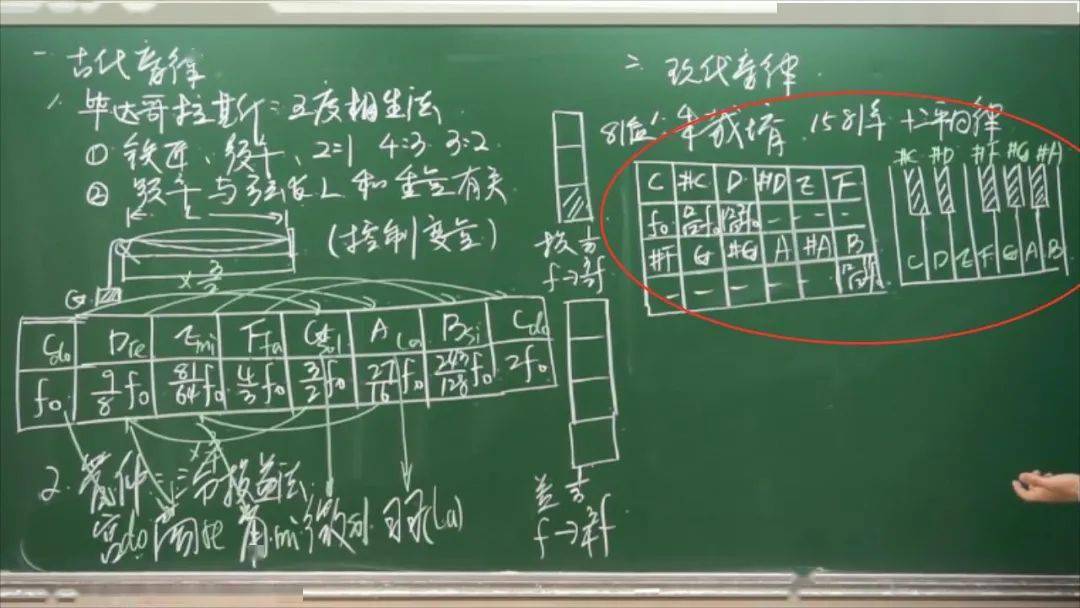 一 古代音律
1. 毕达哥拉斯:五度相生法
① 铁匠、频率、2=1 4:3 3:2
② 频率与弦长L和重量有关
(控制变量)
L
×3/2
G
C do D re E mi F fa G sol A la B si C do
f₀ 9/8 f₀ 81/64 f₀ 4/3 f₀ 3/2 f₀ 27/16 f₀ 243/128 f₀ 2f₀
2. 管仲:三分损益法
宫do 商re 角mi 徵sol 羽(la)
损
f→3/2f
益
f→3/4f
二 现代音律
朱载堉 1581年 十二平均律
C #C D #D E F
f₀ - - -
#F G #G A #A B
- - - - -
#C #D #F #G #A
C D E F G A B